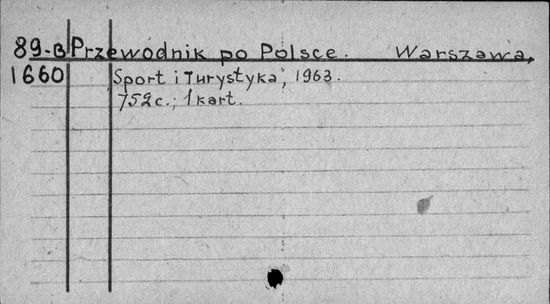 89-B Przewodnik po Polsce. Warszawa,
1660 "Sport i Turystyka", 1963.
752 c.; 1 kart.